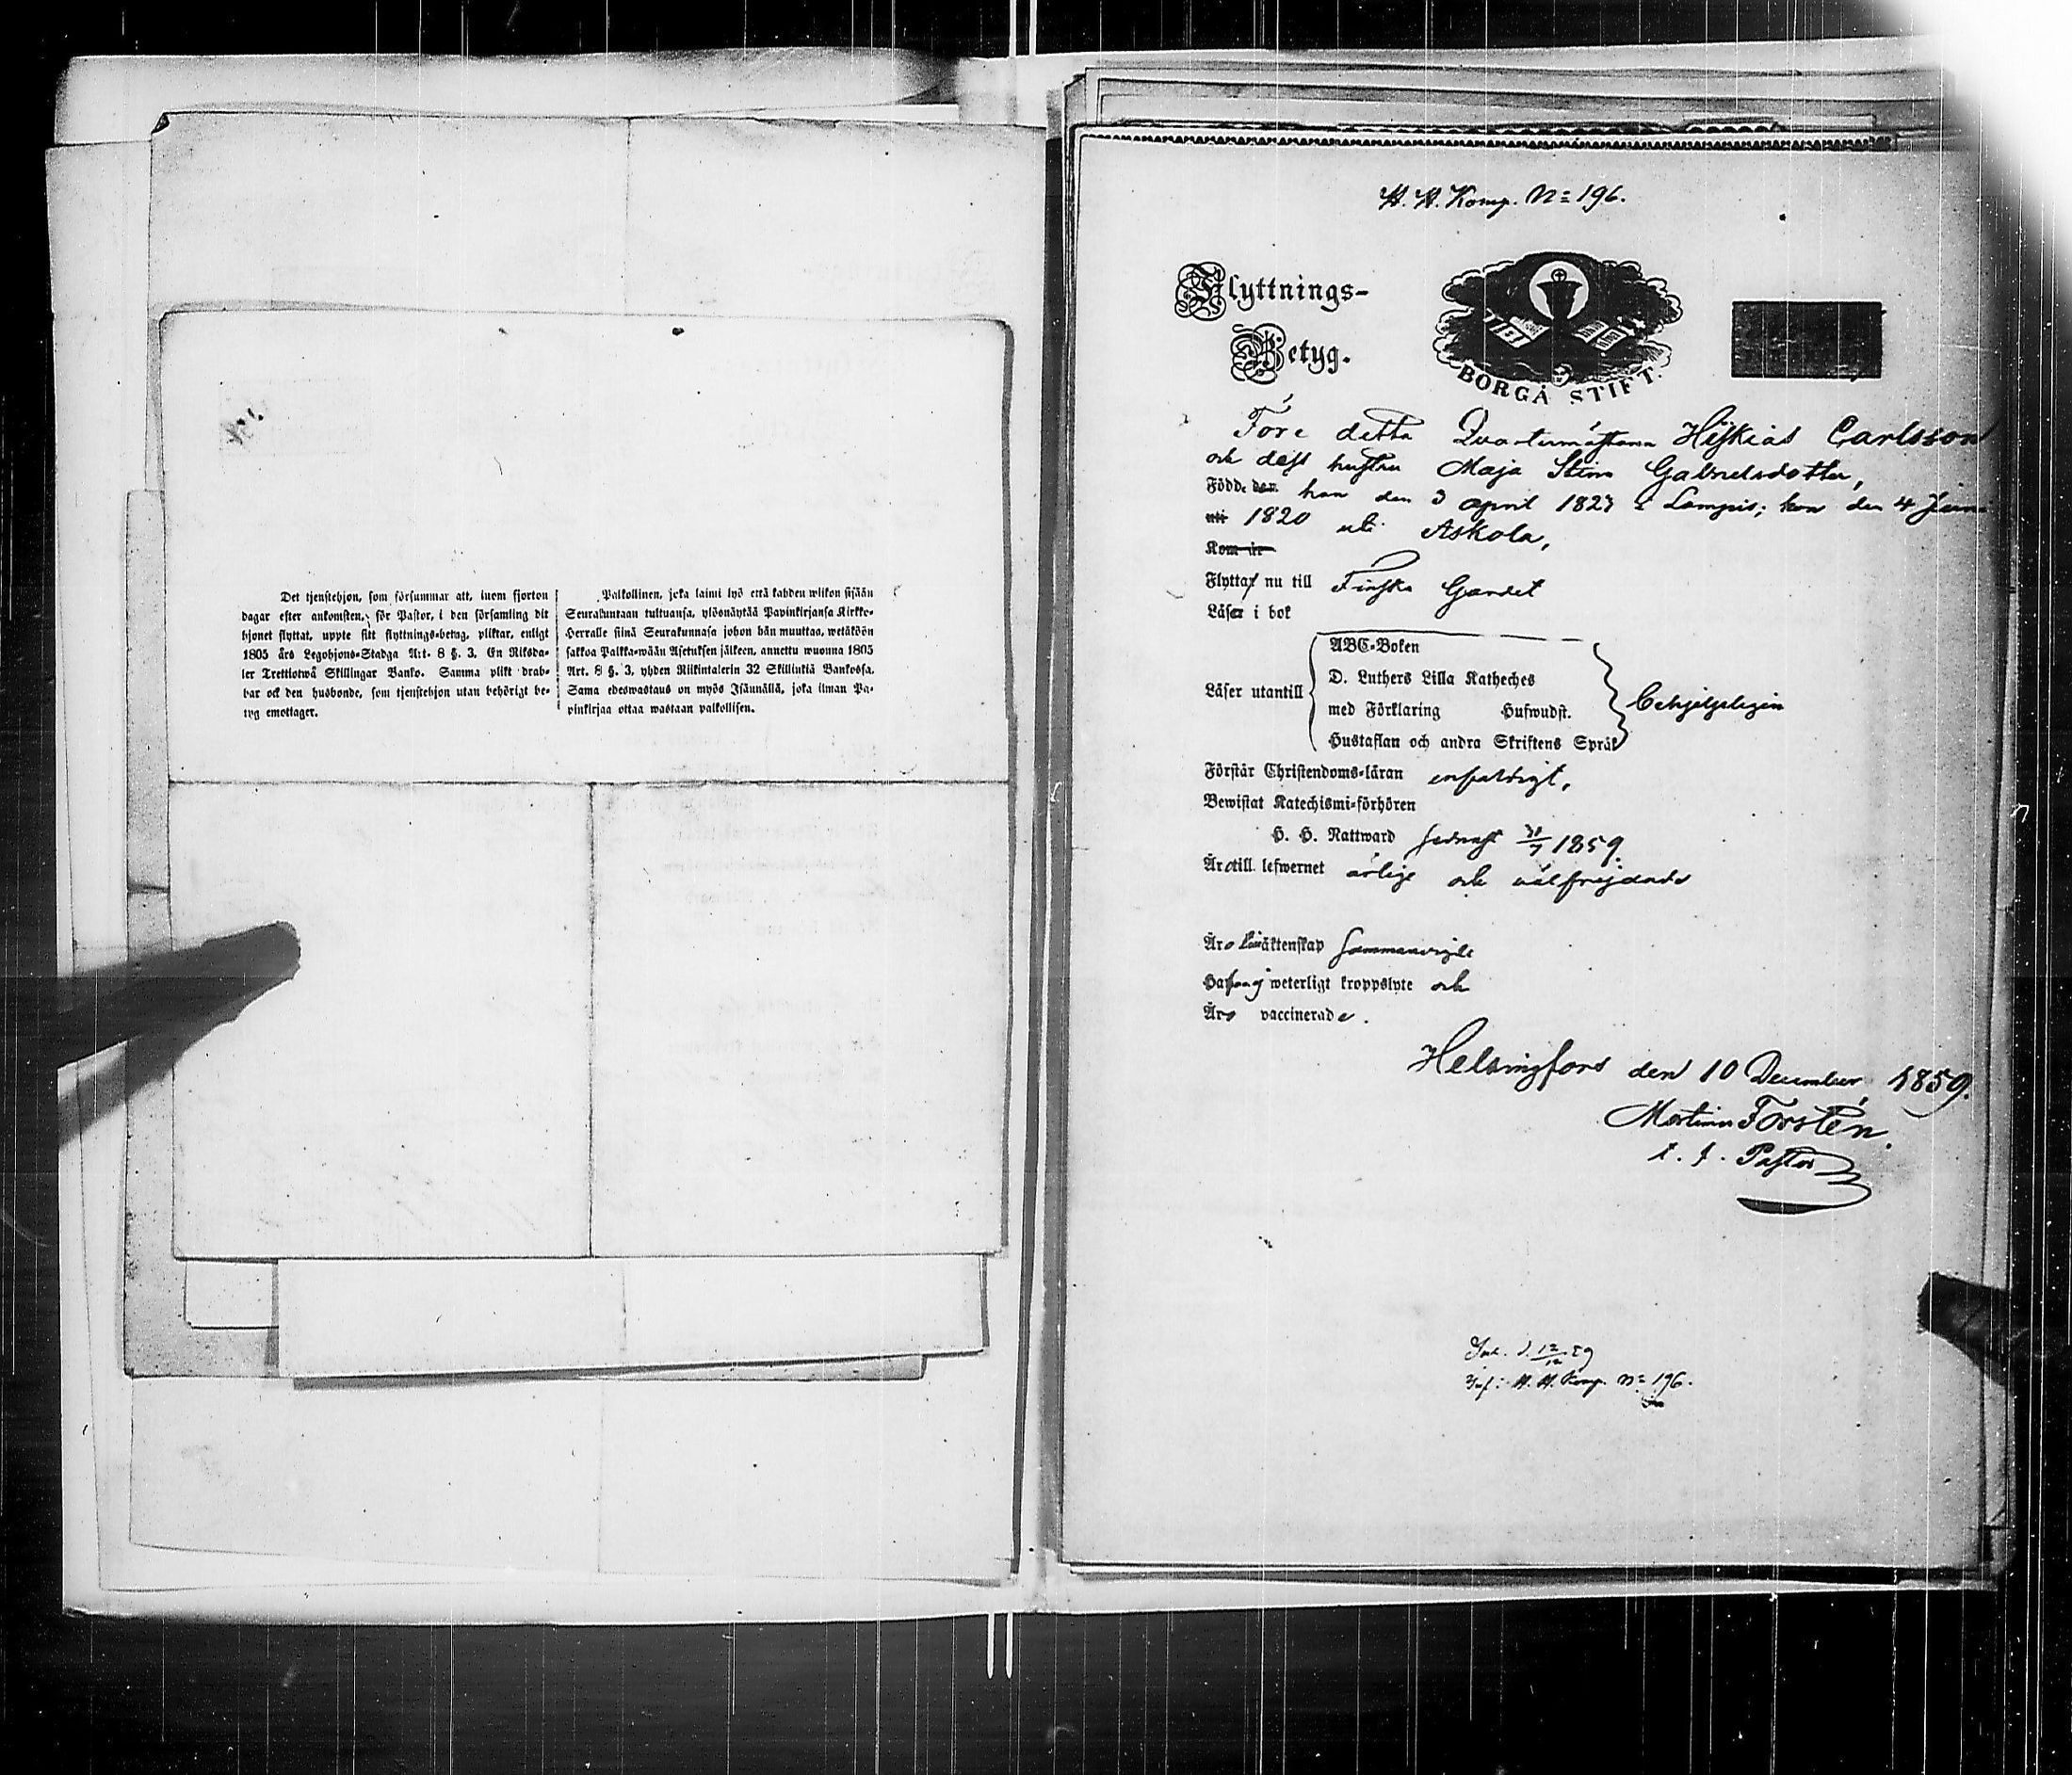 Det tjenstehjon, som försummar att, inom fjorton
dagar efter ankomsten, för Pastor, i den församling dit
hjonet flyttat, uppte sitt flyttnings-betyg, pliktar, enligt
1805 års Legohjons-Stadga Art. 8 §. 3. En Riksda-
ler Trettiotwå Skillingar Banko. Samma plikt drab-
bar ock den husbonde, som tjenstehjon utan behörigt be-
tyg emottager.
Palkollinen, joka laimi lyö että kahden wiikon sisään
Seurakuntaan tultuansa, ylösnäytää Papinkirjansa Kirkko-
Herralle siinä Seurakunnasa johon hän muuttaa, wetäköön
sakkoa Palkka-wään Asetuksen jälkeen, annettu wuonna 1805
Art. 8 §. 3, yhden Riikintalerin 32 Skillinkiä Bankossa.
Sama edeswastaus on myös Isännällä, joka ilman Pa-
pinkirjaa ottaa wastaan palkollisen.
H. H. Komp. No 196.
Flyttnings-
Betyg.
BORGÅ STIFT.
Före detta Quartermästaren Hiskias Carlsson
och dess hustru Maja Stina Gabrielsdotter,
Född den han den 3 april 1823 i Lampis; hon den 4 Juni
uti 1820 uti Askola,
Kom år
Flytta nu till Finska Gardet
Läsa i bok
Läser utantill
ABC-Boken
D. Luthers Lilla Katheches
med Förklaring Hufwudst.
Hustaflan och andra Skriftens Språk
behjelpligen
Förstår Christendoms-läran enfaldigt,
Bewistat Katechismi-förhören
H. H. Nattward sednast 31/7 1859.
Äro till lefwernet ärlige och välfrejdade
Äro i äktenskap sammanvigde
Hafwa ej weterligt kroppslyte och
Äro vaccinerade.
Helsingfors den 10 December 1859.
Martin Forstén.
t. f. Pastor
Ink. d. 12/12 59
Inf: H. H. Komp. No 196.